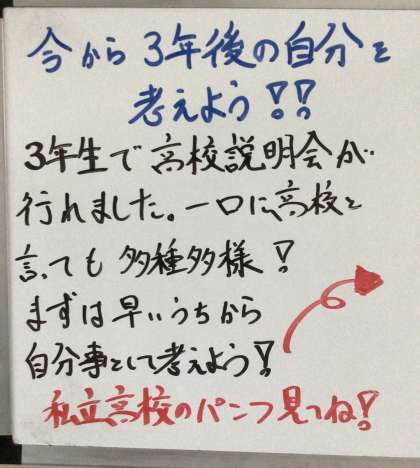 今から3年後の自分を
考えよう!!
3年生で高校説明会が
行れました。一口に高校と
言っても多種多様!
まずは早いうちから
自分事として考えよう!
私立高校のパンフ見てね!